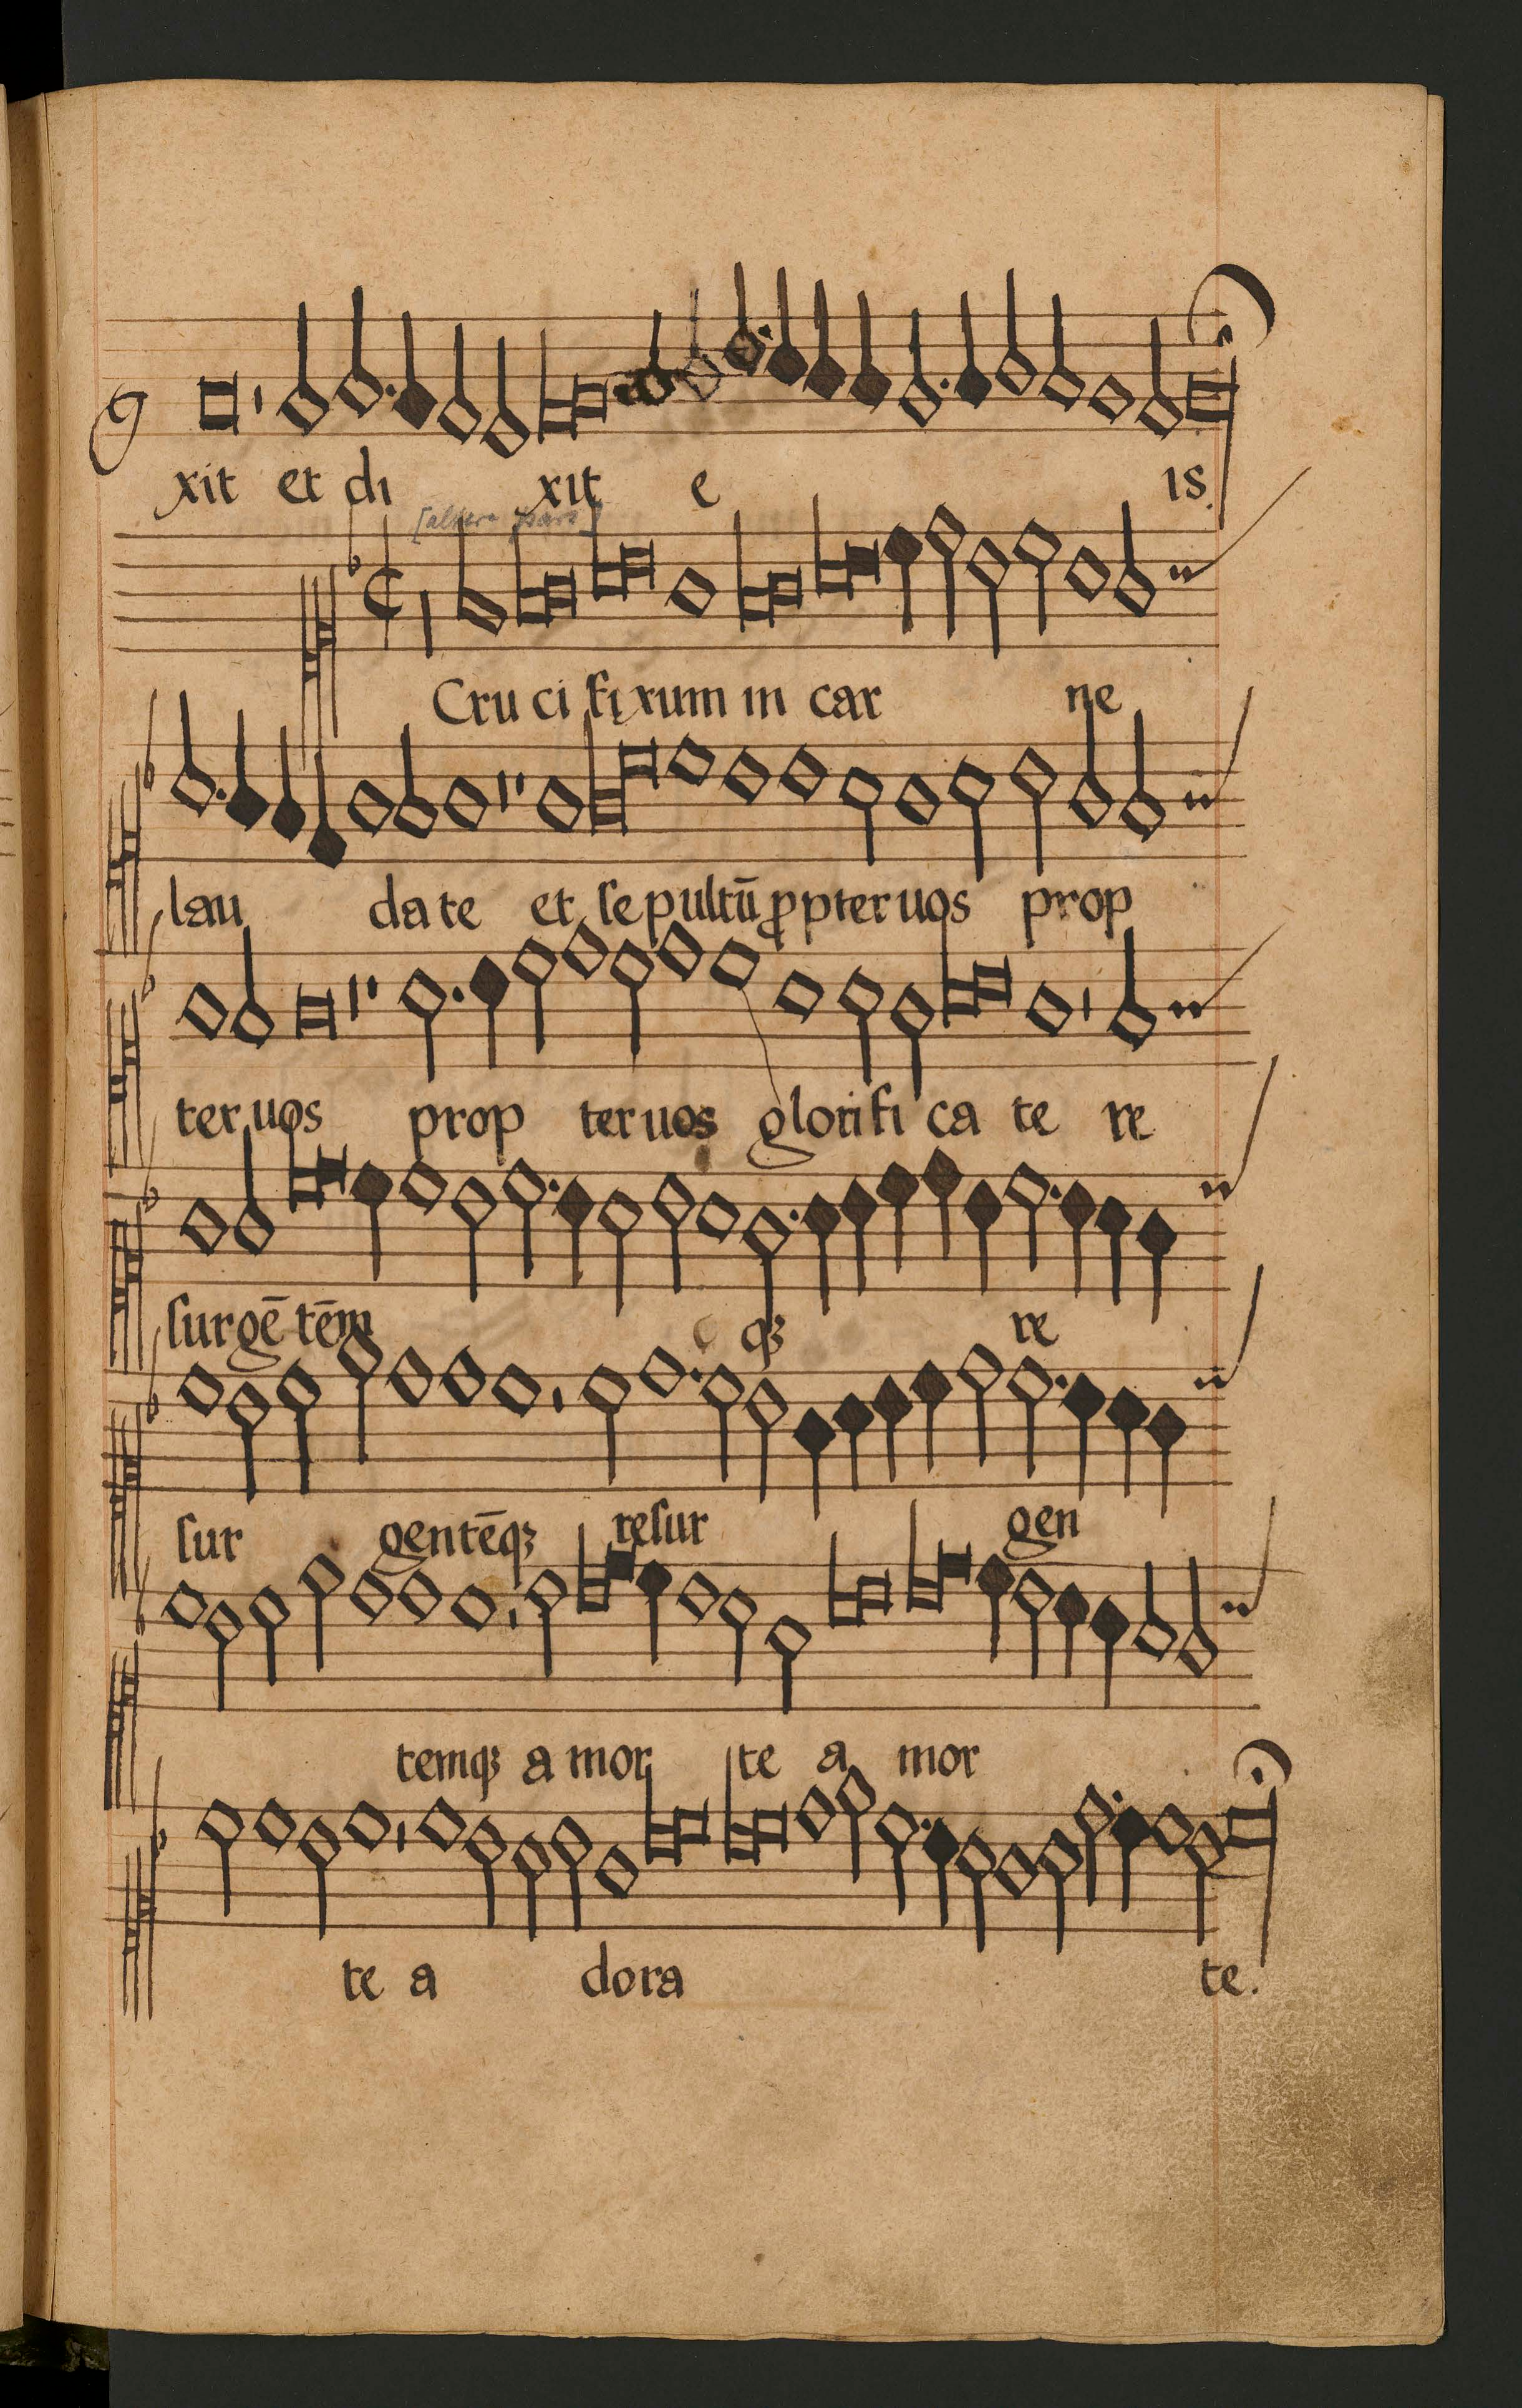 xit et di xit e is.
[altera pars]
Cru ci fi xum in car ne
lau da te et ſe pultū ꝓpter uos prop
ter uos prop ter uos glorifi ca te re
ſurgē tēm qꝫ re
ſur gentēqꝫ reſur gen
temqꝫ a mor te a mor
te a dora te.